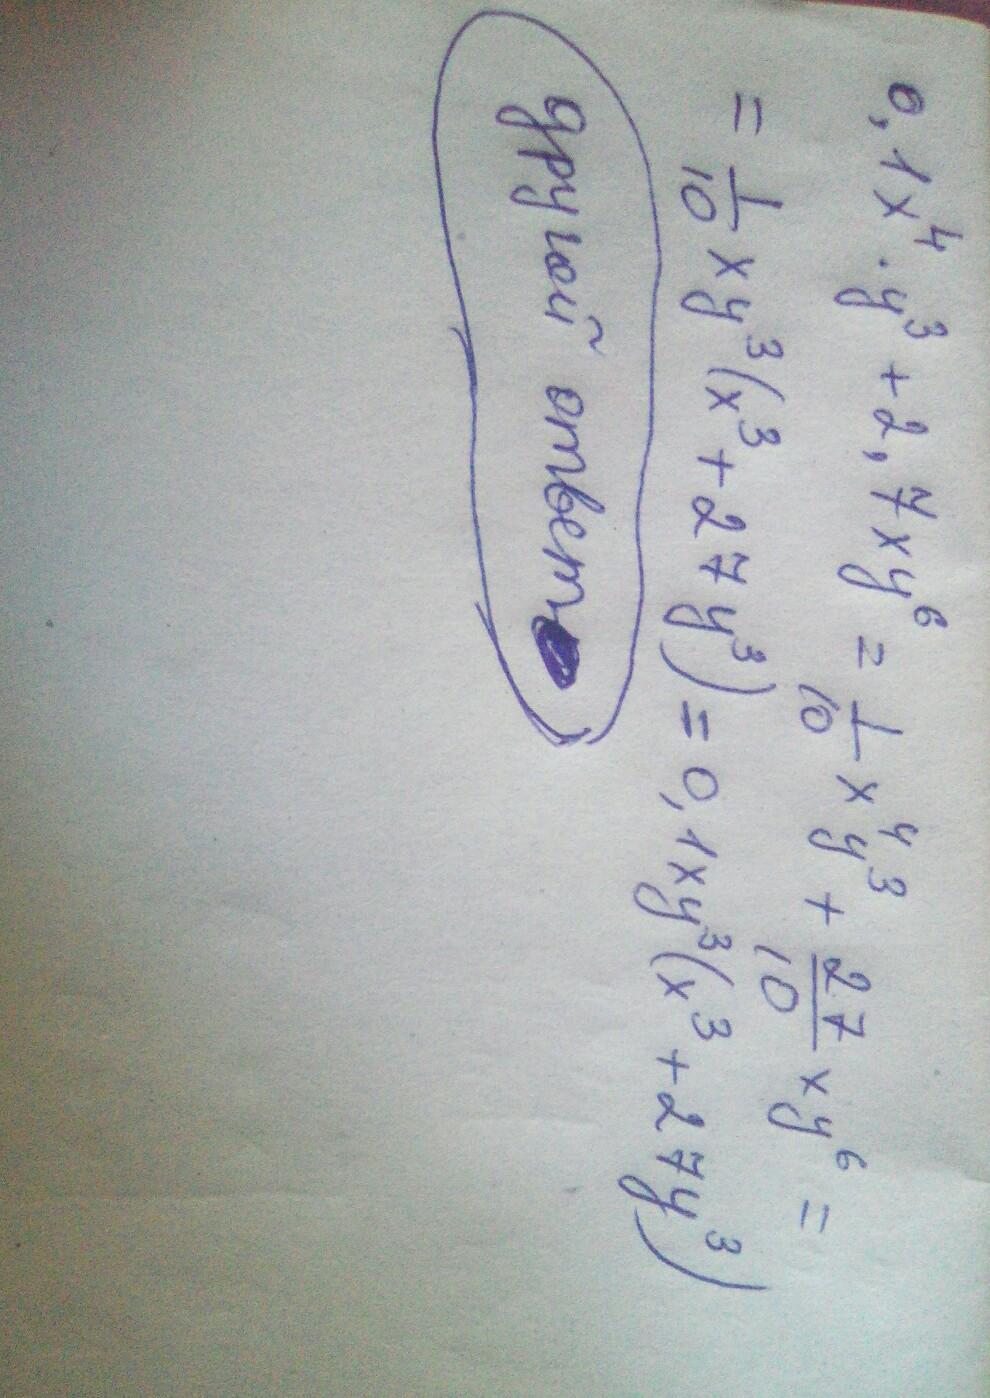 0,1x⁴·y³+2,7xy⁶=1/10x⁴y³+27/10xy⁶=
=1/10xy³(x³+27y³)=0,1xy³(x³+27y³)
другой ответ